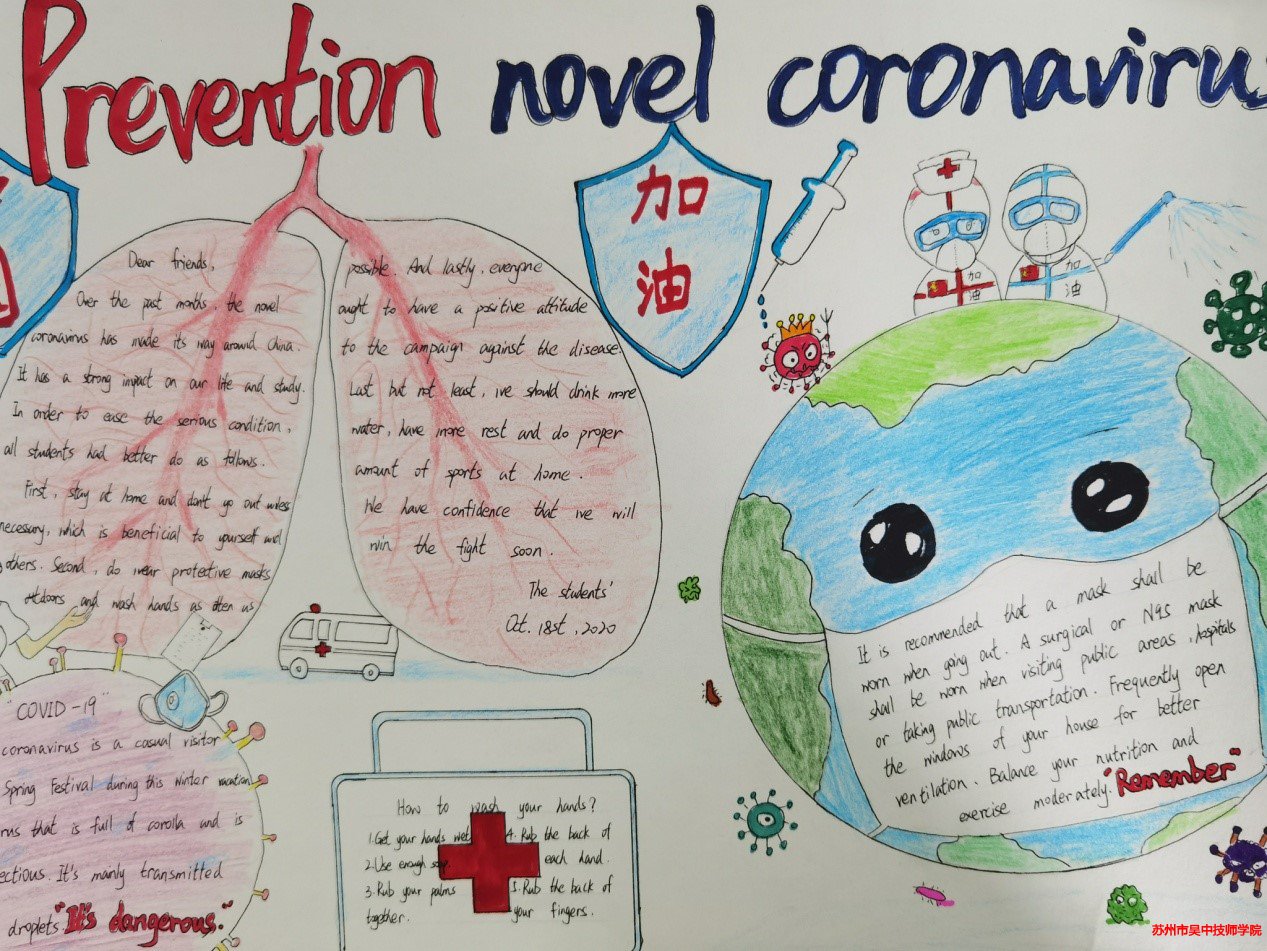 Prevention novel coronavirus
加
油
加
油
加
油
Dear friends,
Over the past months, the novel
coronavirus has made its way around China.
It has a strong impact on our life and study.
In order to ease the serious condition,
all students had better do as follows.
First, stay at home and don't go out unless
necessary, which is beneficial to yourself and
others. Second, do wear protective masks
outdoors and wash hands as often as
possible. And lastly, everyone
ought to have a positive attitude
to the campaign against the disease.
Last but not least, we should drink more
water, have more rest and do proper
amount of sports at home.
We have confidence that we will
win the fight soon.
The students'
Oct. 18st, 2020
"COVID-19"
coronavirus is a casual visitor
Spring Festival during this winter vacation
rus that is full of corolla and is
ectious. It's mainly transmitted
droplets "It's dangerous."
How to wash your hands?
1.Get your hands wet
2.Use enough soap
3.Rub your palms
together.
4.Rub the back of
each hand.
5.Rub the back of
your fingers.
It is recommended that a mask shall be
worn when going out. A surgical or N95 mask
shall be worn when visiting public areas, hospitals
or taking public transportation. Frequently open
the windows of your house for better
ventilation. Balance your nutrition and
exercise moderately. "Remember"
苏州市吴中技师学院